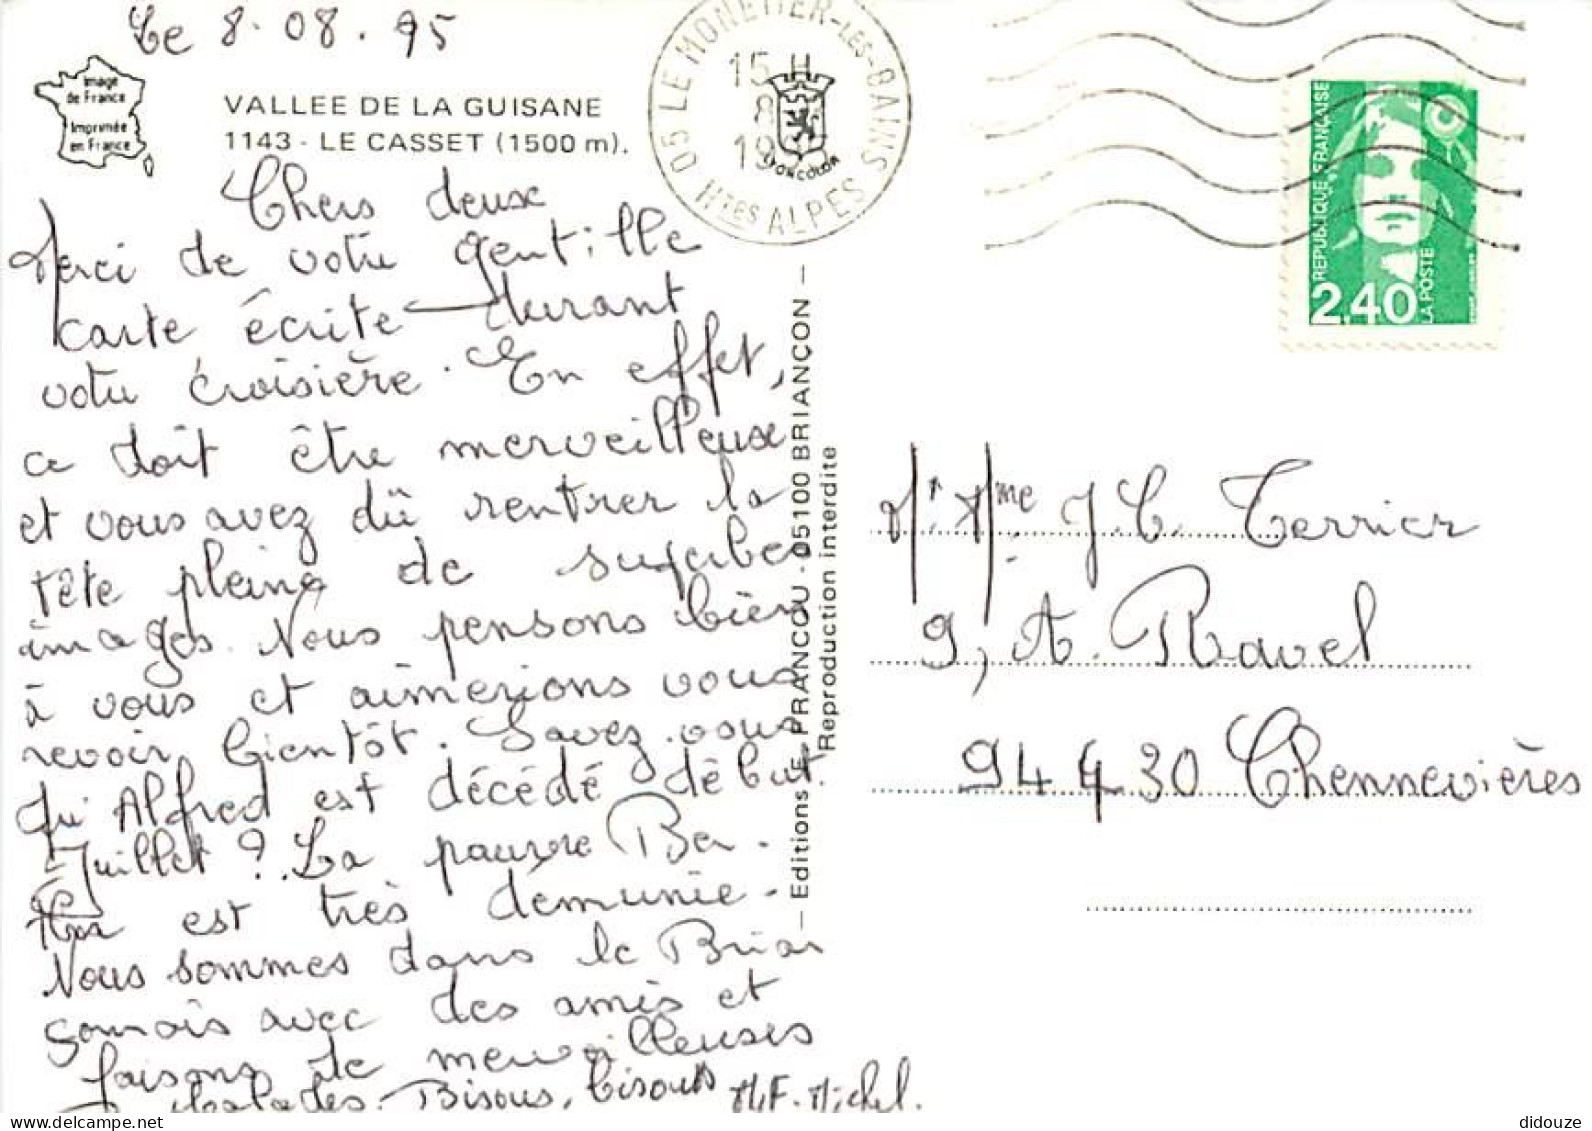 Le 8.08.95
Image
de France
Imprimée
en France
VALLEE DE LA GUISANE
1143 - LE CASSET (1500 m).
05 LE MONETIER-LES-BAINS
15 H
8
19
Htes ALPES
REPUBLIQUE FRANÇAISE
2,40
LA POSTE
Chers deux
Merci de votre gentille
carte écrite durant
votre croisière. En effet,
ce doit être merveilleux
et vous avez dû rentrer la
tête pleine de superbes
images. Nous pensons bien
à vous et aimerions vous
revoir bientôt. Savez-vous
qu'Alfred est décédé début
Juillet ? La pauvre Ber-
est très démunie.
Nous sommes dans le Brian
çonnais avec des amis et
faisons de merveilleuses
balades. Bisous, bisous M.F. Michel.
Editions E. FRANCOU - 05100 BRIANÇON
Reproduction interdite
Mr Mme J.C. Terrier
9, A. Ravel
94430 Chennevières
didouze